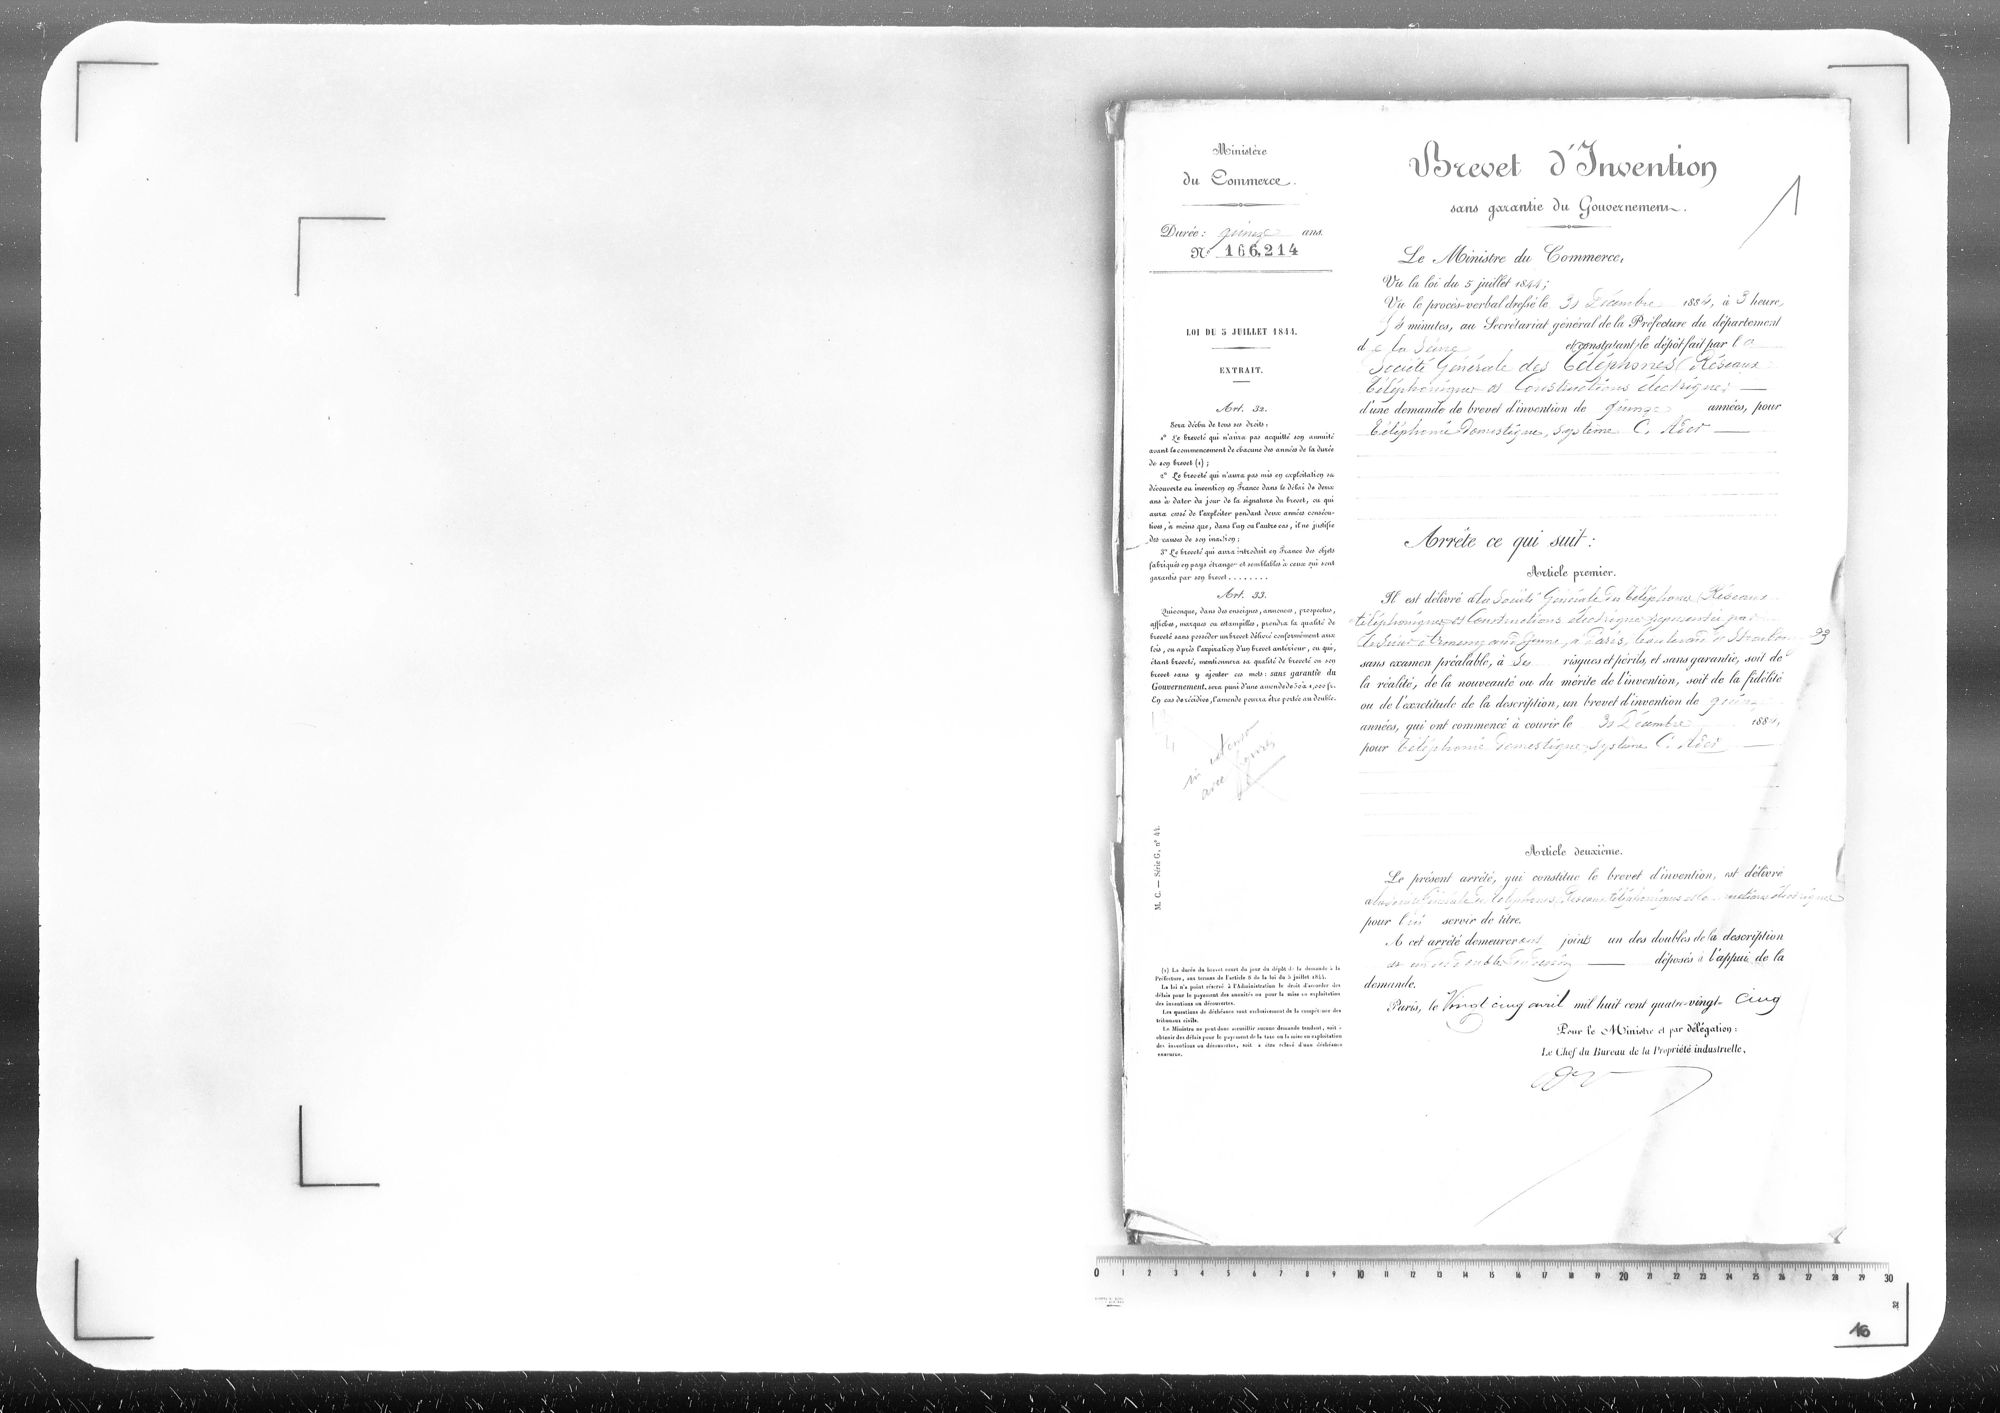 Ministère
du Commerce.
Durée : quinze ans.
N° 166,214
LOI DU 5 JUILLET 1844.
EXTRAIT.
Art. 32.
Sera déchu de tous ses droits :
1° Le breveté qui n'aura pas acquitté son annuité
avant le commencement de chacune des années de la durée
de son brevet (1) ;
2° Le breveté qui n'aura pas mis en exploitation sa
découverte ou invention en France dans le délai de deux
ans à dater du jour de la signature du brevet, ou qui
aura cessé de l'exploiter pendant deux années consécu-
tives, à moins que, dans l'un ou l'autre cas, il ne justifie
des causes de son inaction ;
3° Le breveté qui aura introduit en France des objets
fabriqués en pays étranger et semblables à ceux qui sont
garantis par son brevet . . . . . . . .
Art. 33.
Quiconque, dans des enseignes, annonces, prospectus,
affiches, marques ou estampilles, prendra la qualité de
breveté sans posséder un brevet délivré conformément aux
lois, ou après l'expiration d'un brevet antérieur, ou qui,
étant breveté, mentionnera sa qualité de breveté ou son
brevet sans y ajouter ces mots : sans garantie du
Gouvernement, sera puni d'une amende de 50 à 1,000 fr.
En cas de récidive, l'amende pourra être portée au double.
in extenso
avec figures
M. C. — Série G, n° 44.
(1) La durée du brevet court du jour du dépôt de la demande à la
Préfecture, aux termes de l'article 8 de la loi du 5 juillet 1844.
La loi n'a point réservé à l'Administration le droit d'accorder des
délais pour le payement des annuités ou pour la mise en exploitation
des inventions ou découvertes.
Les questions de déchéance sont exclusivement de la compétence des
tribunaux civils.
Le Ministre ne peut donc accueillir aucune demande tendant, soit à
obtenir des délais pour le payement de la taxe ou la mise en exploitation
des inventions ou découvertes, soit à être relevé d'une déchéance
encourue.
Brevet d'Invention
sans garantie du Gouvernement.
1
Le Ministre du Commerce,
Vu la loi du 5 juillet 1844 ;
Vu le procès-verbal dressé le 31 Décembre 1884, à 3 heure
minutes, au Secrétariat général de la Préfecture du département
de la Seine et constatant le dépôt fait par la
Société Générale des Téléphones (Réseaux
Téléphoniques et Constructions électriques
d'une demande de brevet d'invention de quinze années, pour
Téléphonie Domestique, système C. Ader
Arrête ce qui suit :
Article premier.
Il est délivré à la Société Générale des Téléphones (Réseaux
téléphoniques et Constructions électriques représentée par
le Sieur Armengaud Jeune, à Paris, boulevard de Strasbourg 23
sans examen préalable, à ses risques et périls, et sans garantie, soit de
la réalité, de la nouveauté ou du mérite de l'invention, soit de la fidélité
ou de l'exactitude de la description, un brevet d'invention de quinze
années, qui ont commencé à courir le 31 Décembre 1884,
pour Téléphonie Domestique, système C. Ader
Article deuxième.
Le présent arrêté, qui constitue le brevet d'invention, est délivré
à la Société Générale des Téléphones, Réseaux téléphoniques et Constructions électriques
pour lui servir de titre.
A cet arrêté demeureront joints un des doubles de la description
et un des doubles du dessin déposés à l'appui de la
demande.
Paris, le Vingt cinq avril mil huit cent quatre-vingt- cinq
Pour le Ministre et par délégation :
Le Chef du Bureau de la Propriété industrielle,
0 1 2 3 4 5 6 7 8 9 10 11 12 13 14 15 16 17 18 19 20 21 22 23 24 25 26 27 28 29 30
16